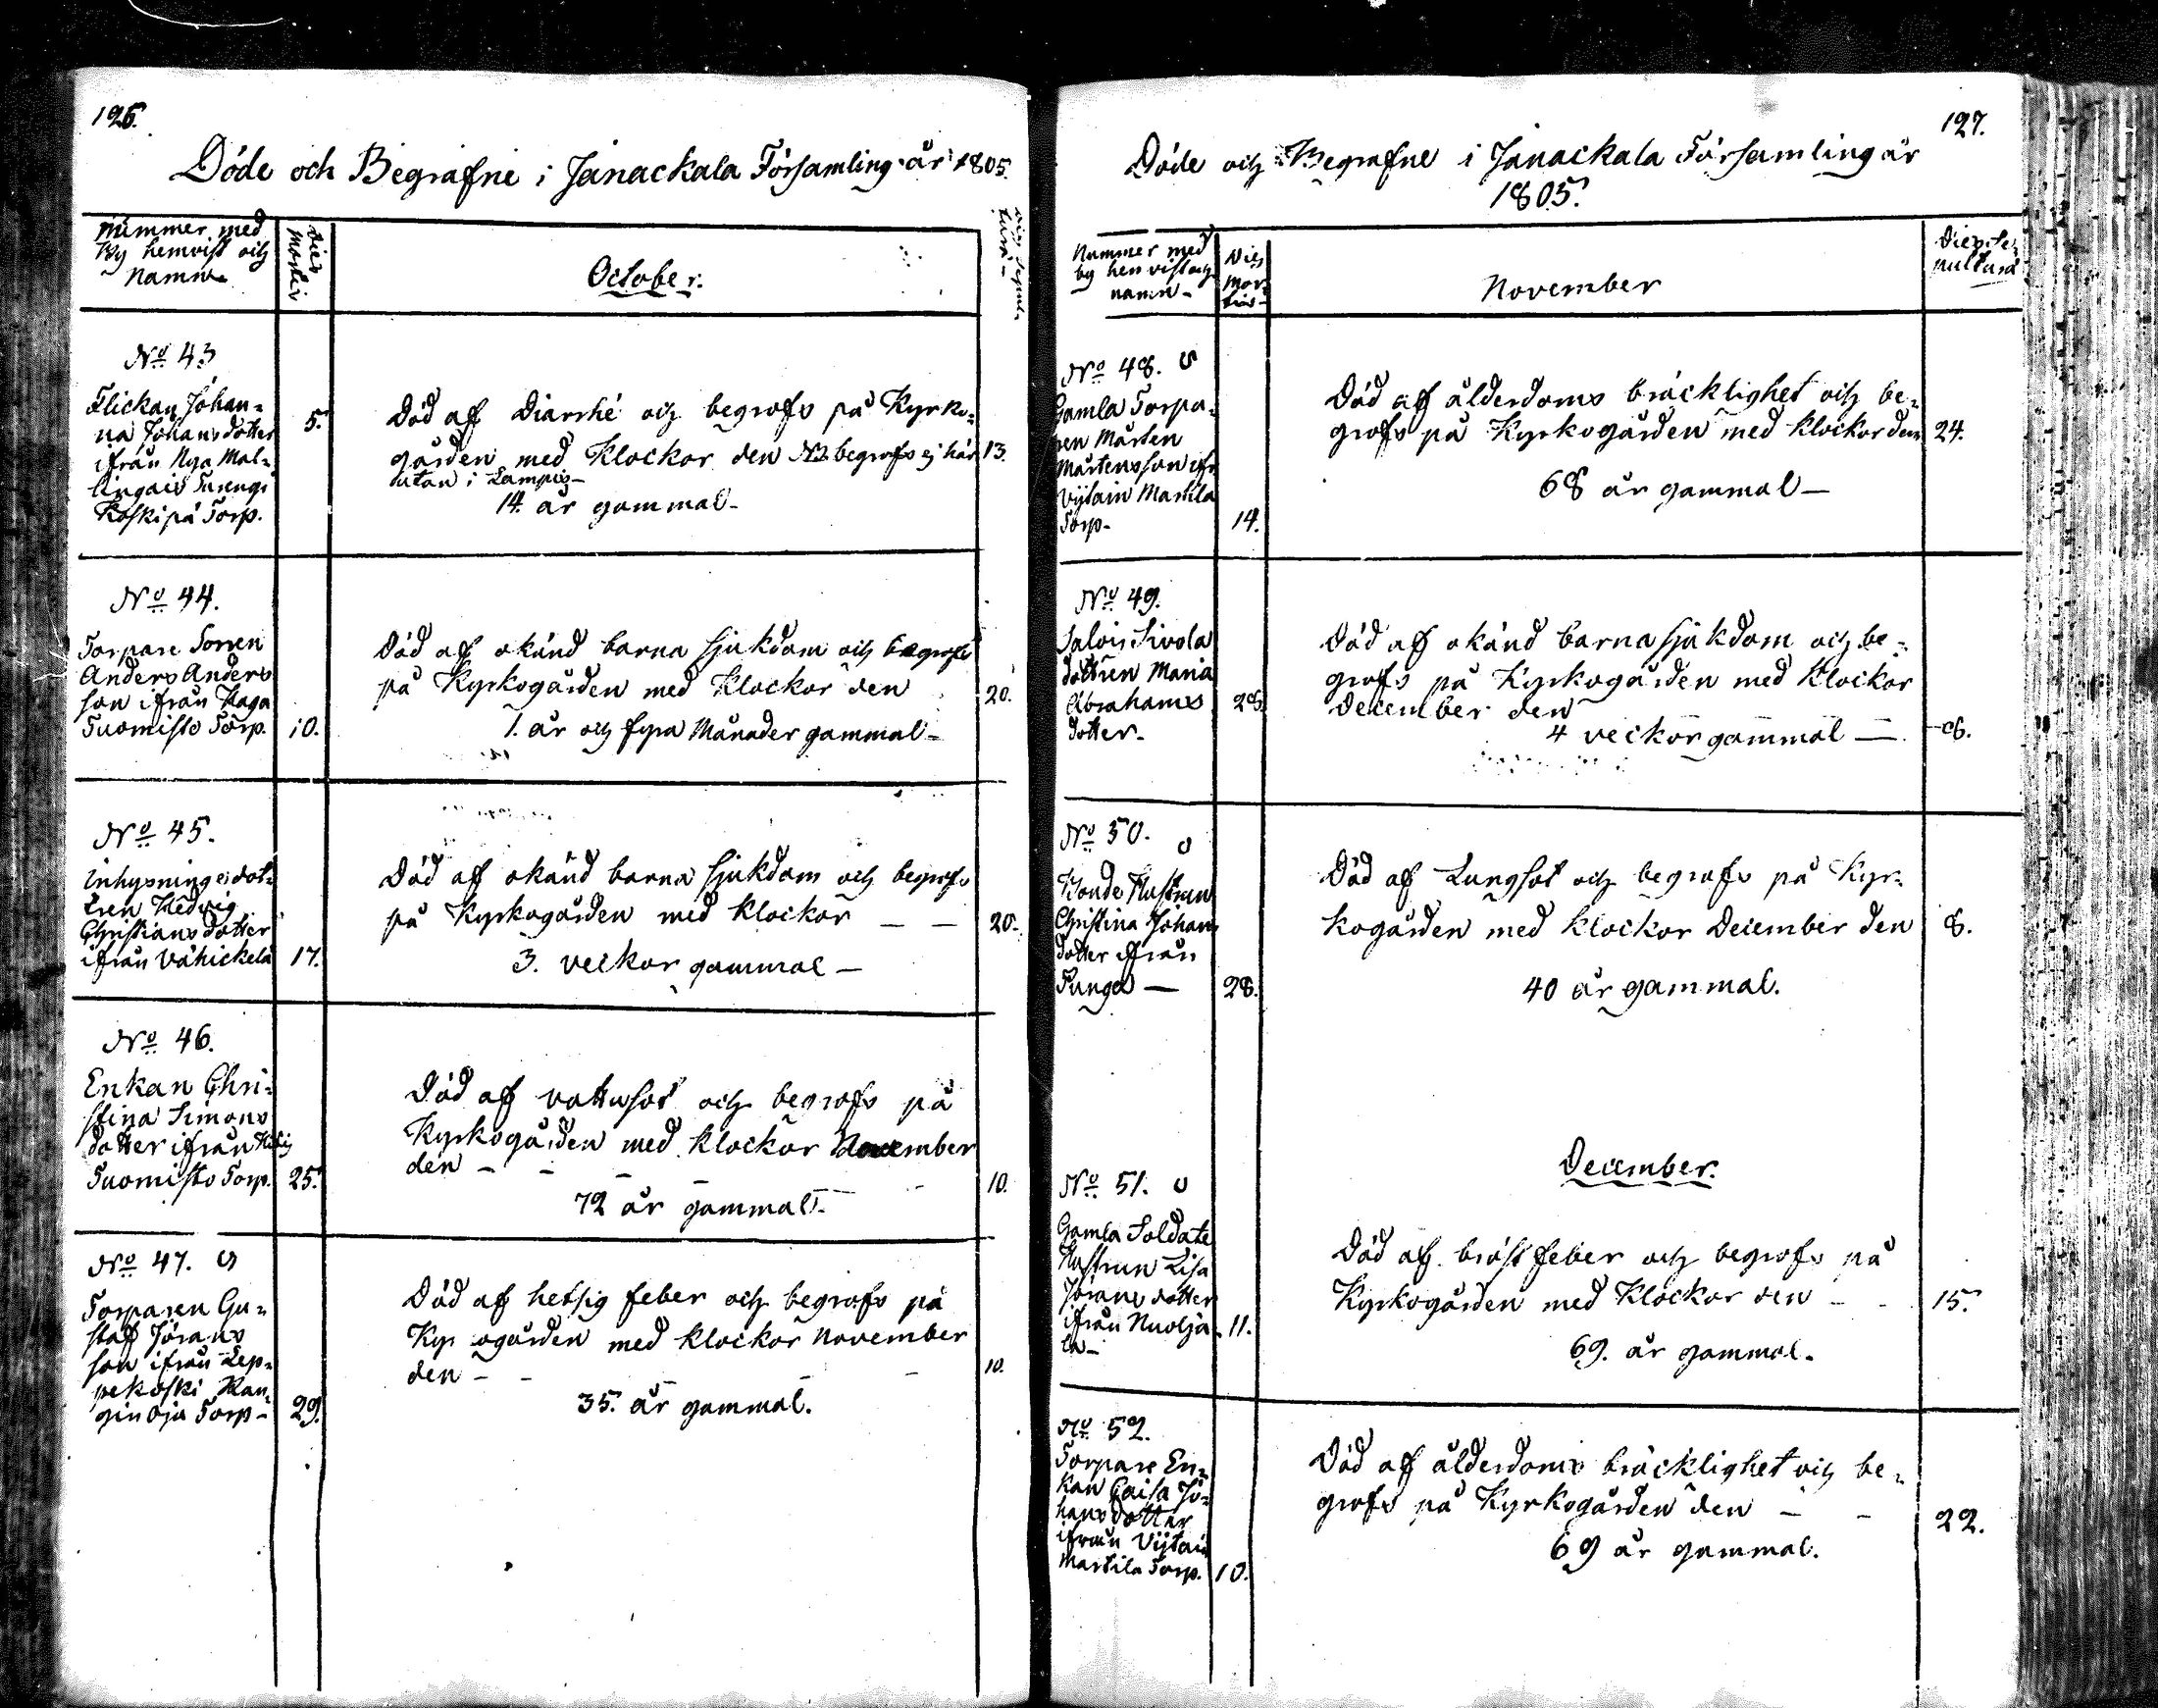 126.
Döde och Begrafne i Janackala Församling år 1805.
Nummer med
By hemvist och
Namn
Dies
Mortis
October.
Dies Sepul-
turæ
No 43
Flickan Johan-
na Johansdotter
ifrån Nya Mal-
lingais Turengi
Koskipä Torp.
5.
Död af Diarrhé och begrofs på Kyrko-
gården med Klockor den NB begrofs ej här
utan i Lampis
14 år gammal
13.
No 44.
Torpare Sonen
Anders Anders
son ifrån Haga
Tuomisto Torp.
10.
Död af okänd barna sjukdom och begrofs
på Kyrkogården med Klockor den
1. år och fyra Månader gammal
20.
No 45.
Inhysninge dot-
tren Hedvig
Christiansdotter
ifrån Vähickelä
17.
Död af okänd barna sjukdom och begrofs
på Kyrkogården med klockor
3. veckor gammal
20.
No 46.
Enkan Chri-
stina Simons
dotter ifrån
Tuomisto Torp.
25.
Död af vattusot och begrofs på
Kyrkogården med klockor November
den
72 år gammal
10.
No 47.
Torparen Gu-
staf Jörans
son ifrån Lep-
pekoski Kan-
gin Oja Torp
29.
Död af hetsig feber och begrofs på
Kyrkogården med klockor November
den
35. år gammal.
10.
127.
Döde och Begrafne i Janackala Församling år
1805.
Nummer med
by hemvist och
namn
Dies
Mor-
tis
November
Dies Se-
pulturæ
No 48.
Gamla Torpa-
ren Mårten
Mårtensson ifr
Vijtain Martila
Torp
14.
Död af ålderdoms bräcklighet och be-
grofs på Kyrkogården med klockor den
68 år gammal
24.
No 49.
Salois Sivola
dottren Maria
Abrahams
dotter.
28
Död af okänd barna sjukdom och be-
grofs på Kyrkogården med Klockor
December den
4 veckor gammal
8.
No 50.
Bonde Hustrun
Christina Johans
dotter ifrån
Tunga
28.
Död af Lungsot och begrofs på Kyr-
kogården med klockor December den
40 år gammal.
8.
December.
No 51.
Gamla Soldate
Hustrun Lisa
Jörans dotter
ifrån Nuoljä
la
11.
Död af bröst feber och begrofs på
Kyrkogården med Klockor den
69. år gammal.
15.
No 52.
Torpare En-
kan Caisa Jo-
hansdotter
ifrån Vijtain
Martila Torp.
10.
Död af ålderdoms bräcklighet och be-
grofs på Kyrkogården den
69 år gammal.
22.